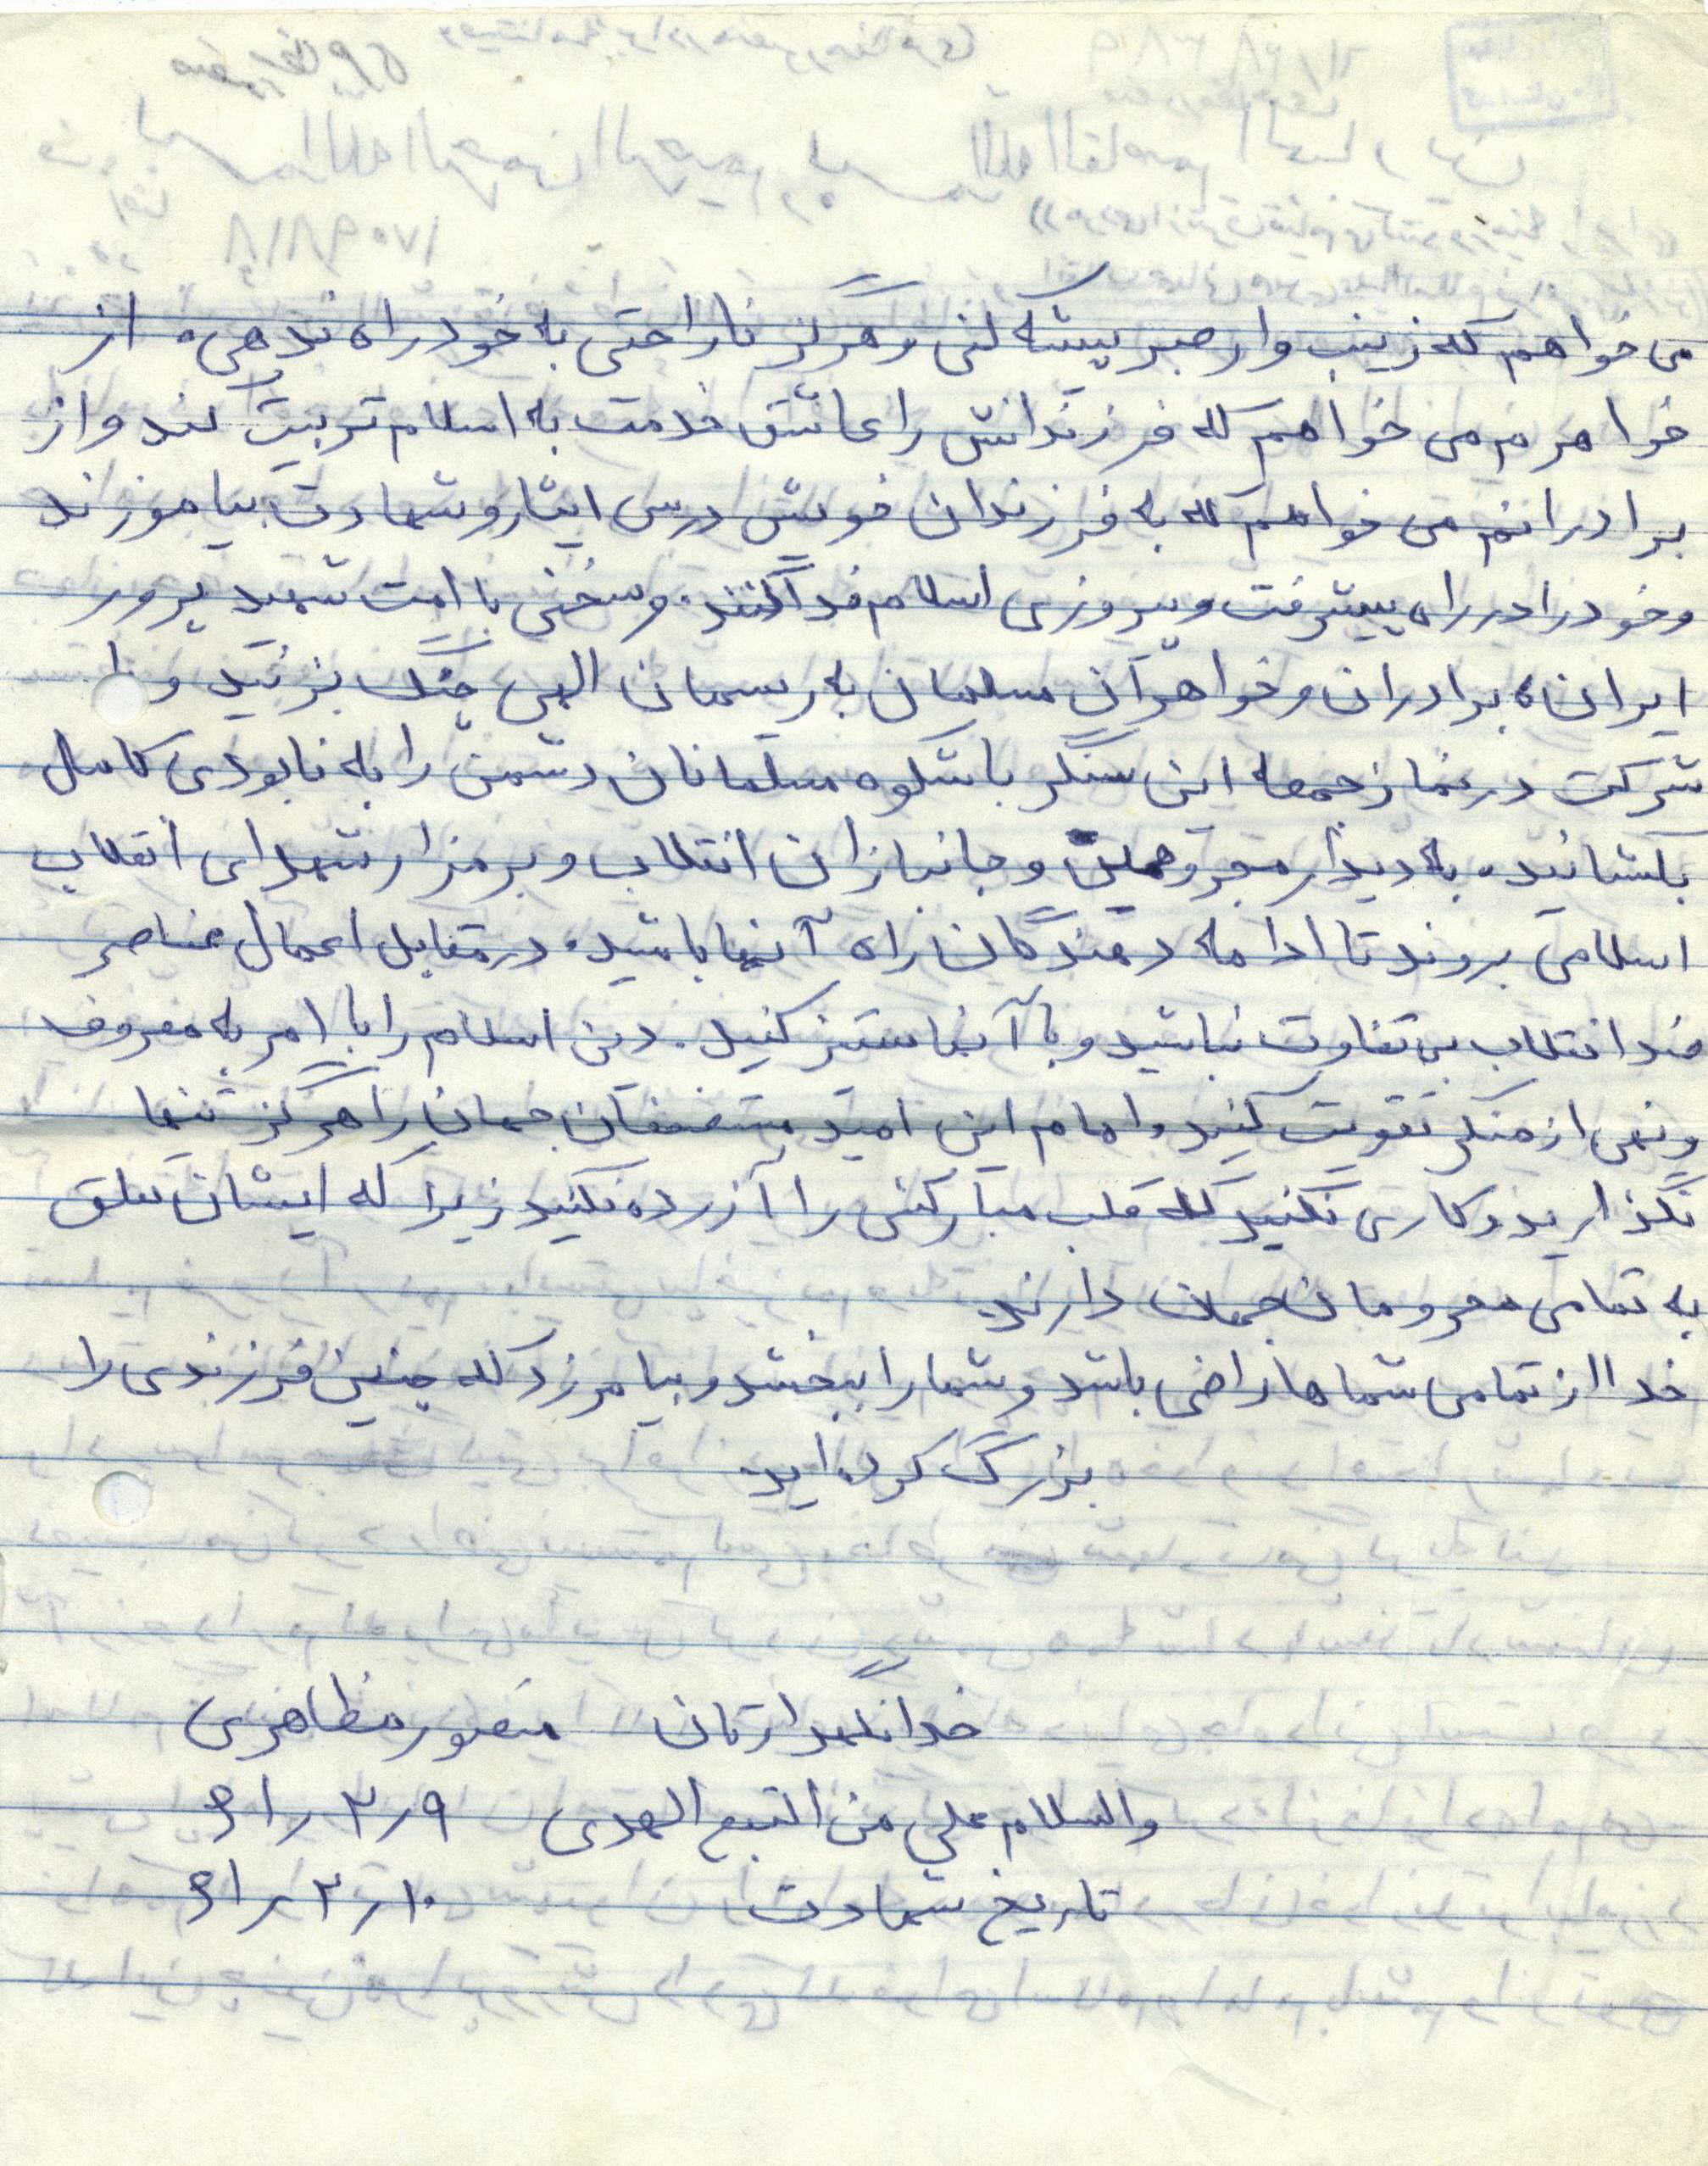 می خواهم که زینب وار صبر پیشه کنی و هرگز ناراحتی به خود راه ندهی. از
خواهرم می خواهم که فرزندانش را عاشق خدمت به اسلام تربیت کند و از
برادرانم می خواهم که به فرزندان خویش درس ایثار و شهادت بیاموزند
و خود را در راه پیشرفت و پیروزی اسلام فدا کنند. و سخنی با امت شهید پرور
ایران، برادران و خواهران مسلمان به ریسمان الهی چنگ بزنید و با
شرکت در نماز جمعه این سنگر باشکوه مسلمانان دشمن را به نابودی کامل
بکشانید. به دیدار مجروحین و جانبازان انقلاب و بر مزار شهدای انقلاب
اسلامی بروند تا ادامه دهندگان راه آنها باشید. در مقابل اعمال عناصر
ضد انقلاب بی تفاوت نباشید و با آنها ستیز کنید. دین اسلام را با امر به معروف
و نهی از منکر تقویت کنید و امام این امید مستضعفان جهان را هرگز تنها
نگذارید و کاری نکنید که قلب مبارکش را آزرده نکنید زیرا که ایشان تعلق
به تمامی محرومان جهان دارند.
خدا از تمامی شماها راضی باشد و شما را ببخشد و بیامرزد که چنین فرزندی را
بزرگ کرده اید.
خدا نگهدارتان منصور مظاهری
والسلام علی من التبع الهدی ۹ر۲ر۶۱
تاریخ شهادت ۱۰ر۲ر۶۱